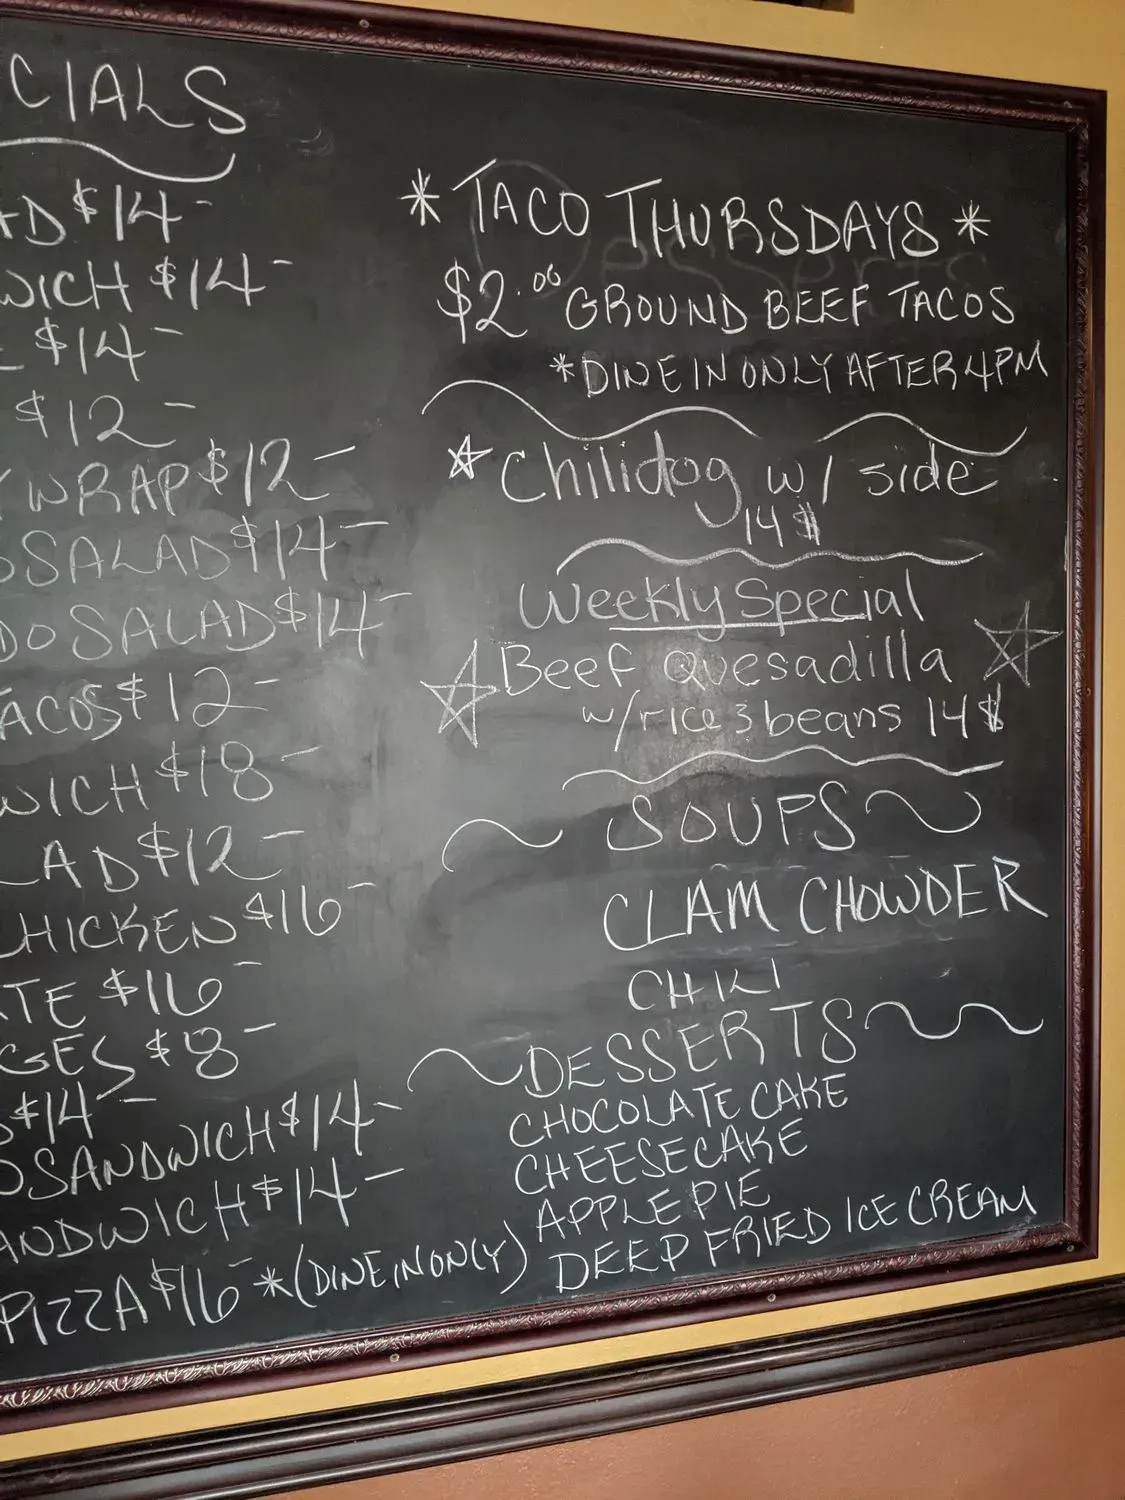 CIALS
AD $14-
WICH $14-
E $14-
$12-
Y WRAP $12-
O SALAD $14-
DO SALAD $14-
TACOS $12-
WICH $18-
LAD $12-
CHICKEN $16-
TE $16-
GES $8-
S $14-
O SANDWICH $14-
ANDWICH $14-
PIZZA $16- *(DINE IN ONLY)
* TACO THURSDAYS *
$2.00 GROUND BEEF TACOS
*DINE IN ONLY AFTER 4PM
Chilidog w/ side
14$
Weekly Special
Beef Quesadilla
w/rice & beans 14$
SOUPS
CLAM CHOWDER
DESSERTS
CHOCOLATE CAKE
CHEESECAKE
APPLE PIE
DEEP FRIED ICE CREAM